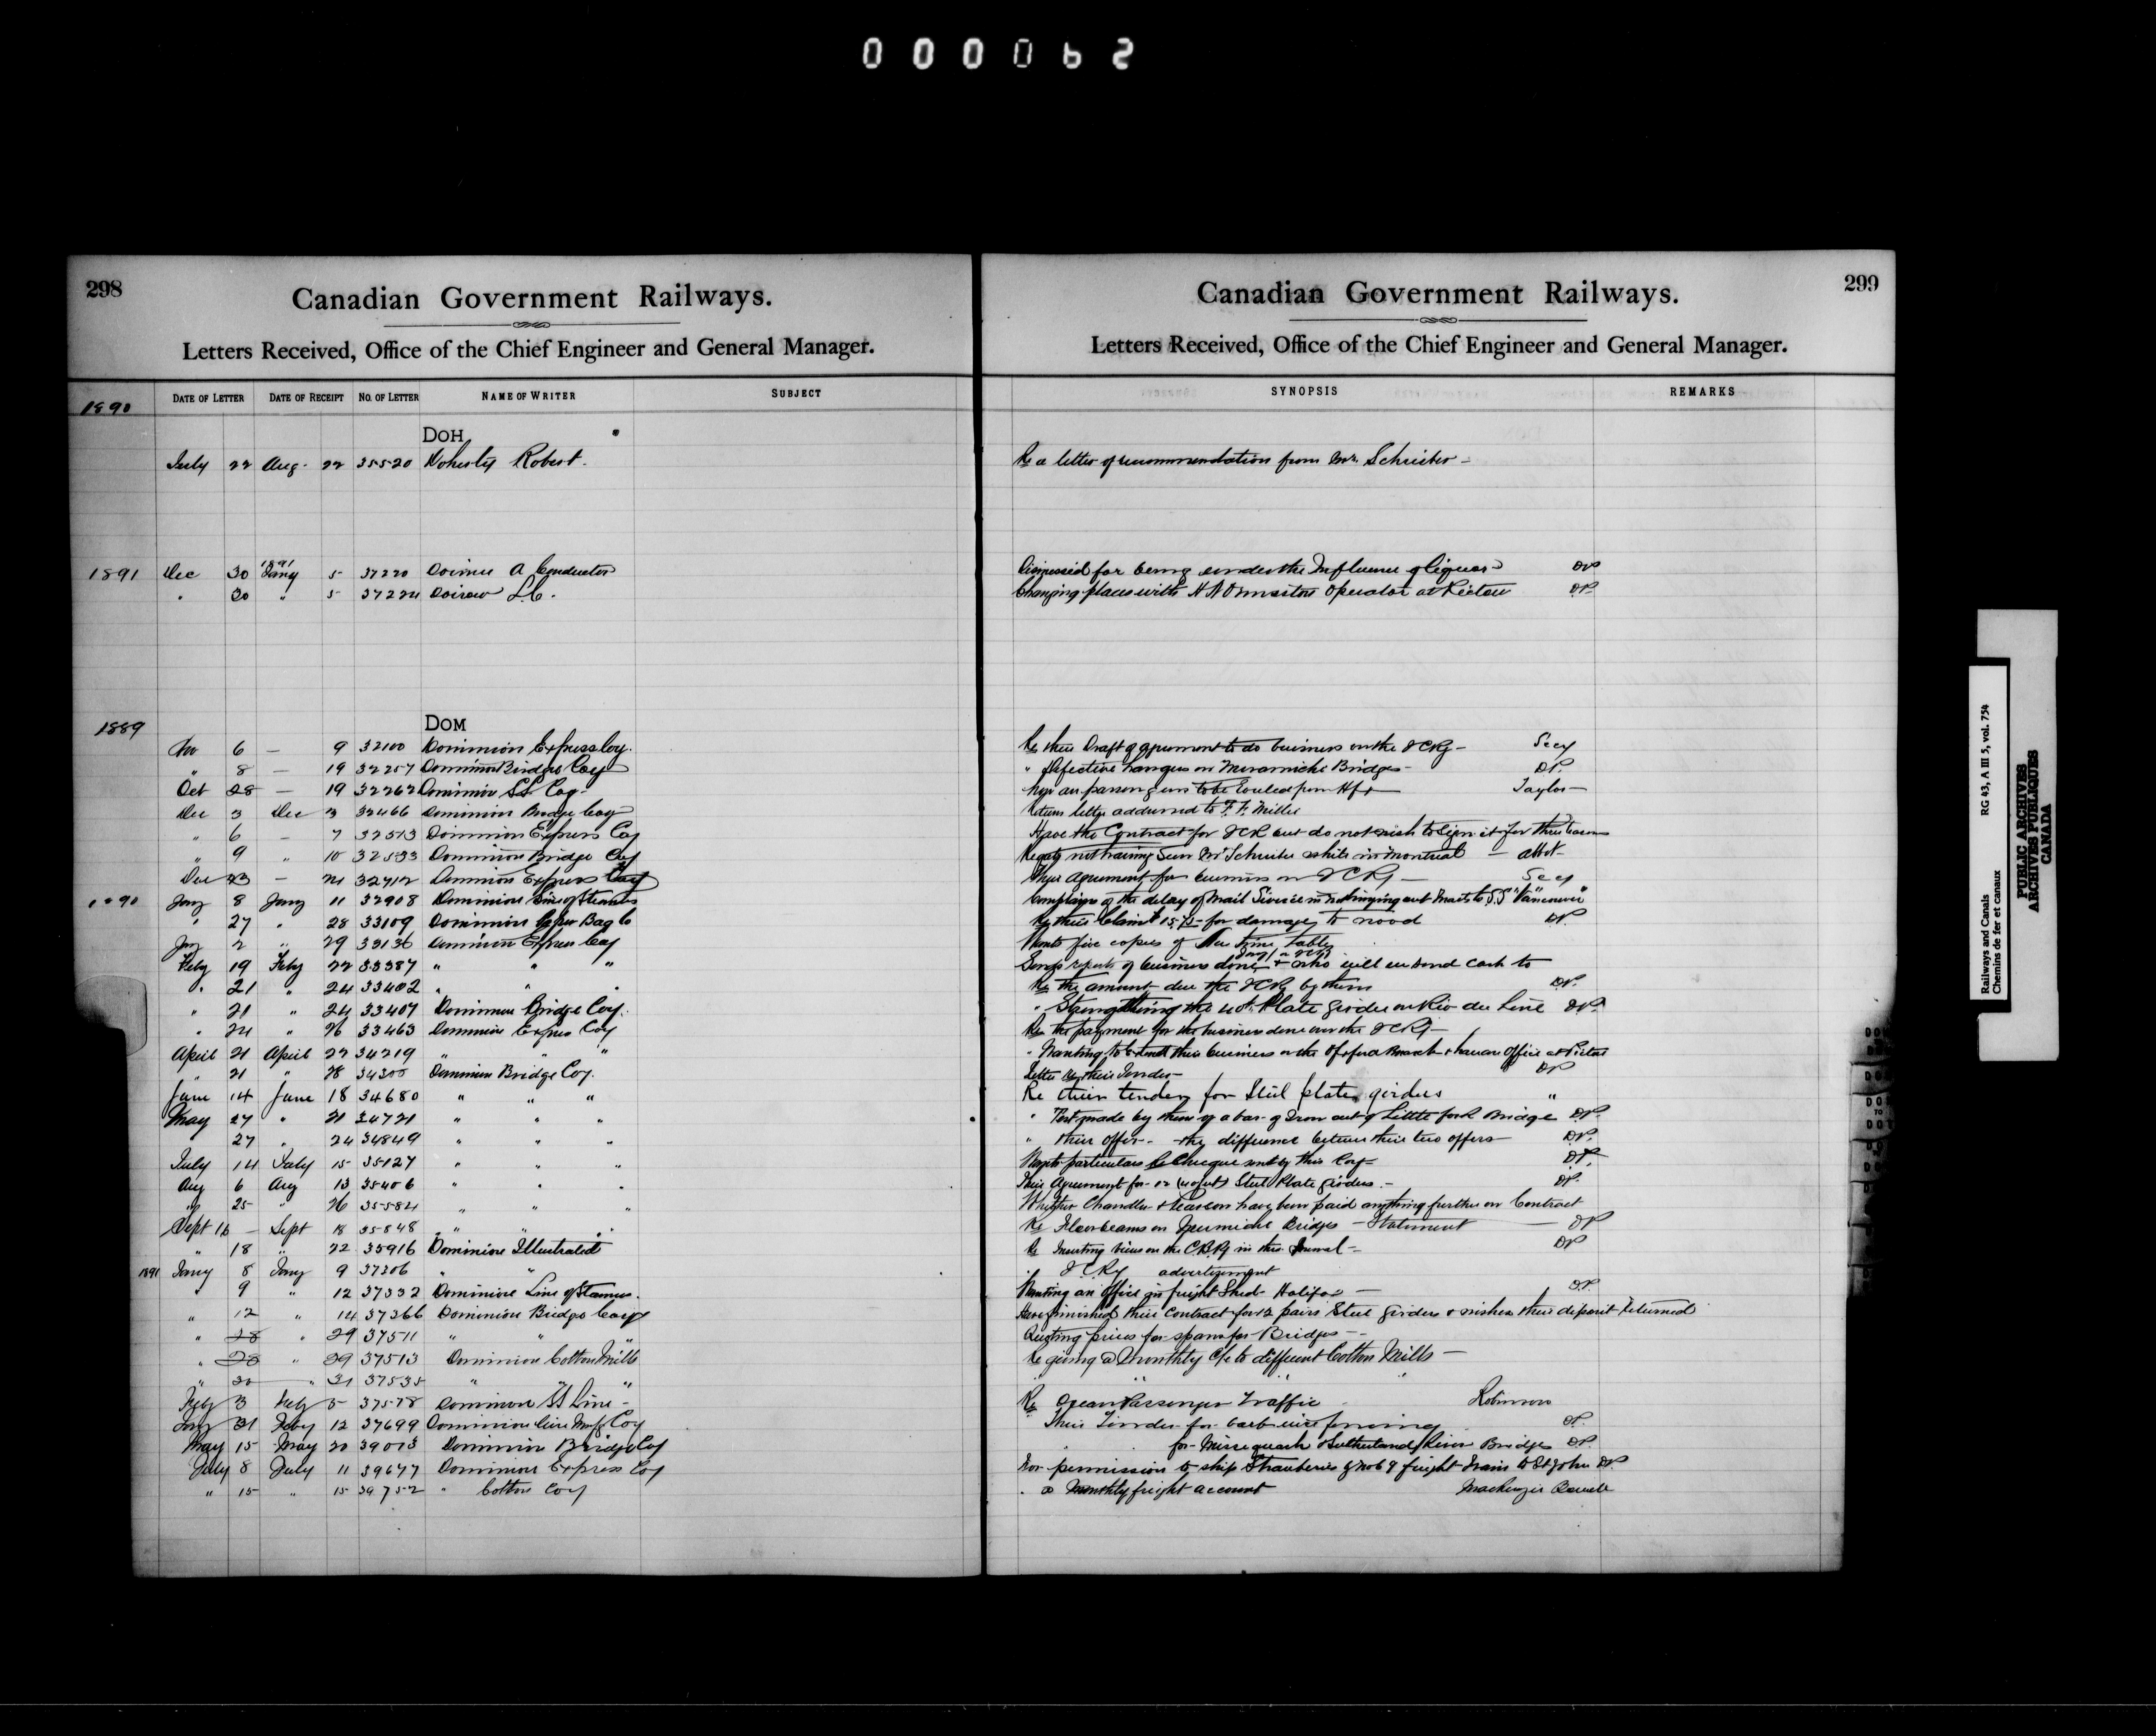 000062
298
Canadian Government Railways.
Letters Received, Office of the Chief Engineer and General Manager.
1890 DATE OF LETTER DATE OF RECEIPT NO. OF LETTER NAME OF WRITER SUBJECT
DOH
July 22 Aug. 22 35520 Doherty Robert.
1891 Dec 30 1891 Jany 5 37220 A Conductor
" 30 " 5 37224
1889 DOM
Nov 6 — 9 32100 Dominion Express Coy.
" 8 — 19 32257 Dominion Bridge Coy
Oct 28 — 19 32262 Dominion SS. Coy.
Dec 3 Dec 3 32466 Dominion Bridge Coy
" 6 — 7 32513 Dominion Express Coy
" 9 " 10 32533 Dominion Bridge Coy
Dec 23 — 24 32712 Dominion Express Coy
1890 Jany 8 Jany 11 32908 Dominion Line of Steamers
" 27 " 28 33109 Dominion Paper Bag Co
Jany 2 " 29 33136 Dominion Express Coy
Feby 19 Feby 22 33387 " " "
" 21 " 24 33402 " " "
" 21 " 24 33407 Dominion Bridge Coy.
" 24 " 26 33463 Dominion Express Coy
April 21 April 22 34219 " " "
" 21 " 28 34300 Dominion Bridge Coy.
June 14 June 18 34680 " " "
May 27 " 21 34721 " " "
27 " 24 34849 " " "
July 14 July 15 35127 " " "
Aug 6 Aug 13 35406 " " "
" 25 " 26 35584 " " "
Sept 16 — Sept 18 35848 " " "
" 18 " 22 35916 Dominion Illustrated
1891 Jany 8 Jany 9 37206 " "
" 9 " 12 37332 Dominion Line of Steamers.
" 12 " 14 37366 Dominion Bridge Coy
" 28 " 29 37511 " " "
" 28 " 29 37513 Dominion Cotton Mills
" 30 " 31 37535 " " "
Feby 3 Feby 5 37578 Dominion SS Line -
Jany 31 Feby 12 37699 Dominion Wire Manfg Coy
May 15 May 20 39013 Dominion Bridge Coy
July 8 July 11 39677 Dominion Express Coy
" 15 " 15 39752 " Cotton Coy
299
Canadian Government Railways.
Letters Received, Office of the Chief Engineer and General Manager.
SYNOPSIS REMARKS
Re a letter of recommendation from Mr. Schreiber -
Dismissed for being under the Influence of liquor - DP
Changing places with Operator at Pictou DP.
Re their Draft agreement to do business on the ICRy - Secy
" defective hangers on Miramichi Bridges - DP.
Taylor -
Return letter addressed to F. F. Miller
Have the Contract for ICR but do not wish to sign it for three
Regrets not having seen Mr Schreiber while in Montreal — abbt -
Their agreement for business on ICRy — Secy
Complains of the delay of Mail Service in not bringing out Mails to S.S "Vancouver"
Re their Claim for damage to wood DP.
Wants five copies of New Time tables
Sends reports of business done & who will send cash to
Re the amount due the ICRy by them DP.
" Strengthening the Plate Girder on Riv du Line DP.
Re the payment for the business done over the ICRy -
" Wanting to extend their business on the Oxford Branch & have an Office at Pictou
Letter Re their Tender — DP
Re their tender for Steel plate girders "
" Test made by them of a bar of Iron out of Little fork Bridge DP.
" their offer - the difference between their two offers DP.
Wants particulars Re Cheque sent by this Coy - DP.
Their Agreement for 12 Steel Plate Girders. - DP.
Whether Chandler & Pearson have been paid anything further on Contract
Re Floorbeams on Bridges — Statement — DP
Re Inserting Views on the C.P.Ry in this Journal — DP
" ICRy advertizement
Wanting an Office in freight Shed Halifax — DP.
Have finished their Contract for 12 pairs Steel Girders & wishes their deposit returned
Quoting prices for spans for Bridges —
Re giving a Monthly a/c to different Cotton Mills —
" " "
Re Ocean Passenger Traffic Robinson
Their Tender for barb wire fencing DP.
" for Missequash & Sutherland River Bridges DP.
For permission to ship Strawberries by No 6 & 9 freight trains to St John DP
" a Monthly freight account Mackenzie Bowell
Railways and Canals RG 43, A III 5, vol. 754
Chemins de fer et canaux
PUBLIC ARCHIVES
ARCHIVES PUBLIQUES
CANADA